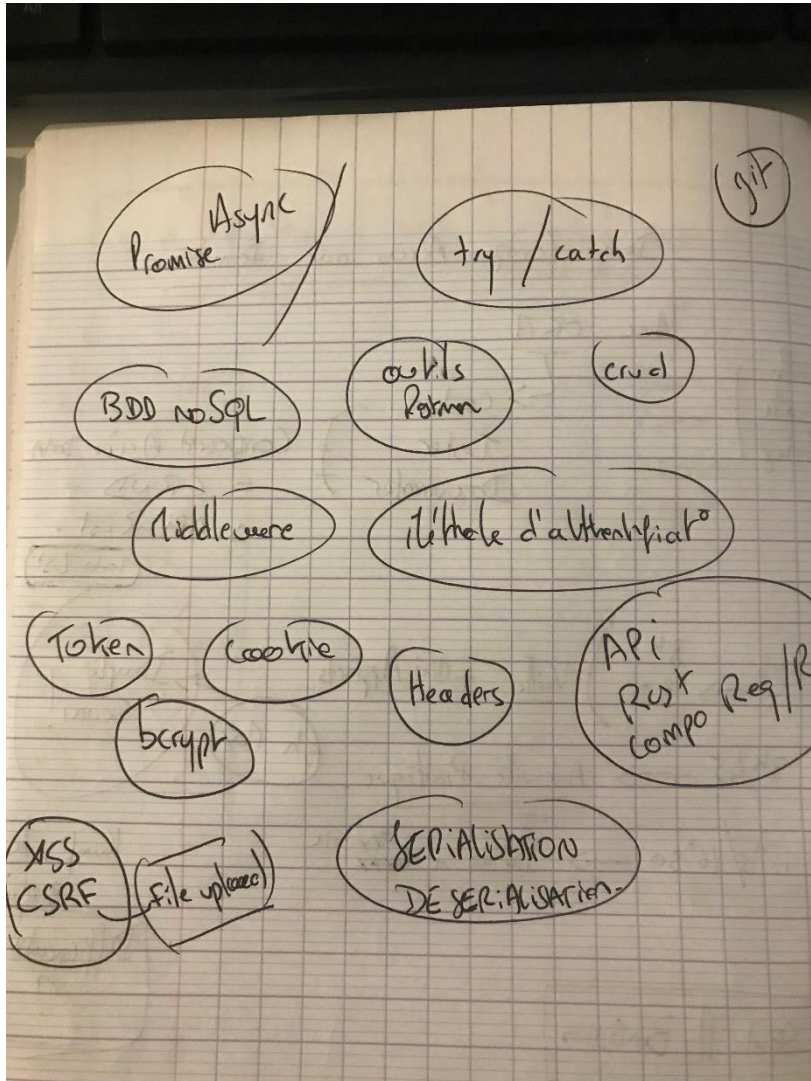 git
Async
Promise
try / catch
BDD noSQL
outils
Potman
crud
Middlewere
Méthode d'authentificat°
Token
Cookie
Headers
API
Rest
compo Req/R
bcrypt
XSS
CSRF
file upload
SERIALISATION
DESERIALISATION